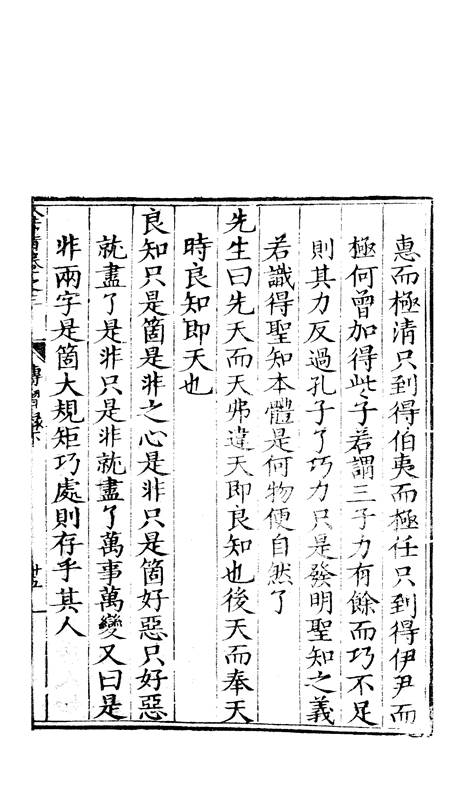 惠而極清只到得伯夷而極任只到得伊尹而
極何曾加得此子若謂三子力有餘而巧不足
則其力反過孔子了巧力只是發明聖知之義
若識得聖知本體是何物便自然了
先生曰先天而天弗違天即良知也後天而奉天
時良知即天也
良知只是箇是非之心是非只是箇好惡只好惡
就盡了是非只是非就盡了萬事萬變又曰是
非兩字是箇大規矩巧處則存乎其人
傳習錄下 廿五